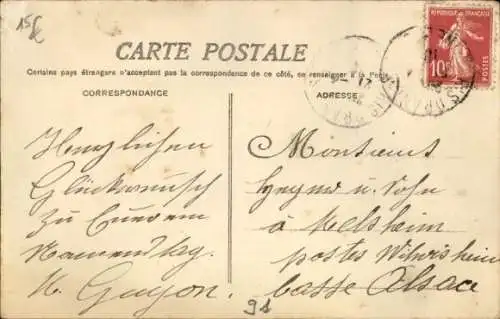 15
CARTE POSTALE
Certains pays étrangers n'acceptant pas la correspondance de ce côté, se renseigner à la Poste
CORRESPONDANCE
ADRESSE
REPUBLIQUE FRANÇAISE
10c
POSTES
Herzlichen
Glückwunsch
zu Eurem
Namenstag.
Guyon.
Monsieur
Heyner u. Sohn
à Melsheim
postes Wilwisheim
basse Alsace
91